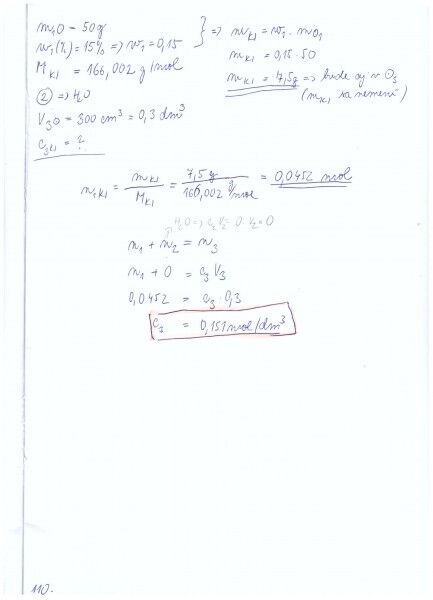 m₁O = 50g
w₁(%) = 15% => w₁ = 0,15
M KI = 166,002 g/mol
} => m KI = w₁ . mO₁
m KI = 0,15 . 50
m KI = 7,5g => bude aj v O₃
(m KI sa nemení)
② => H₂O
V₃O = 300 cm³ = 0,3 dm³
c₃KI = ?
n₁KI = m KI / M KI = 7,5g / 166,002 g/mol = 0,0452 mol
H₂O => c₂V₂ = 0 . V₂ = 0
n₁ + n₂ = n₃
n₁ + 0 = c₃V₃
0,0452 = c₃ . 0,3
c₃ = 0,151 mol/dm³
110.